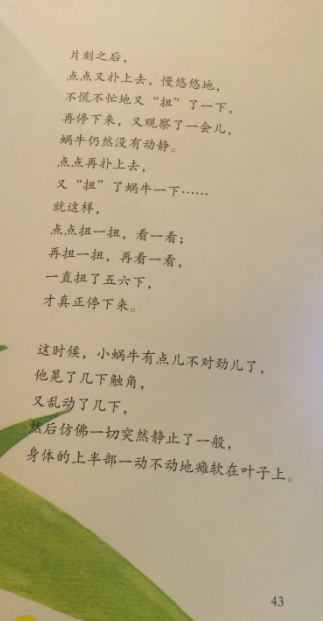 片刻之后，
点点又扑上去，慢悠悠地，
不慌不忙地又“扭”了一下，
再停下来，又观察了一会儿，
蜗牛仍然没有动静。
点点再扑上去，
又“扭”了蜗牛一下……
就这样，
点点扭一扭，看一看；
再扭一扭，再看一看，
一直扭了五六下，
才真正停下来。
这时候，小蜗牛有点儿不对劲儿了，
他晃了几下触角，
又乱动了几下，
然后仿佛一切突然静止了一般，
身体的上半部一动不动地瘫软在叶子上。
43